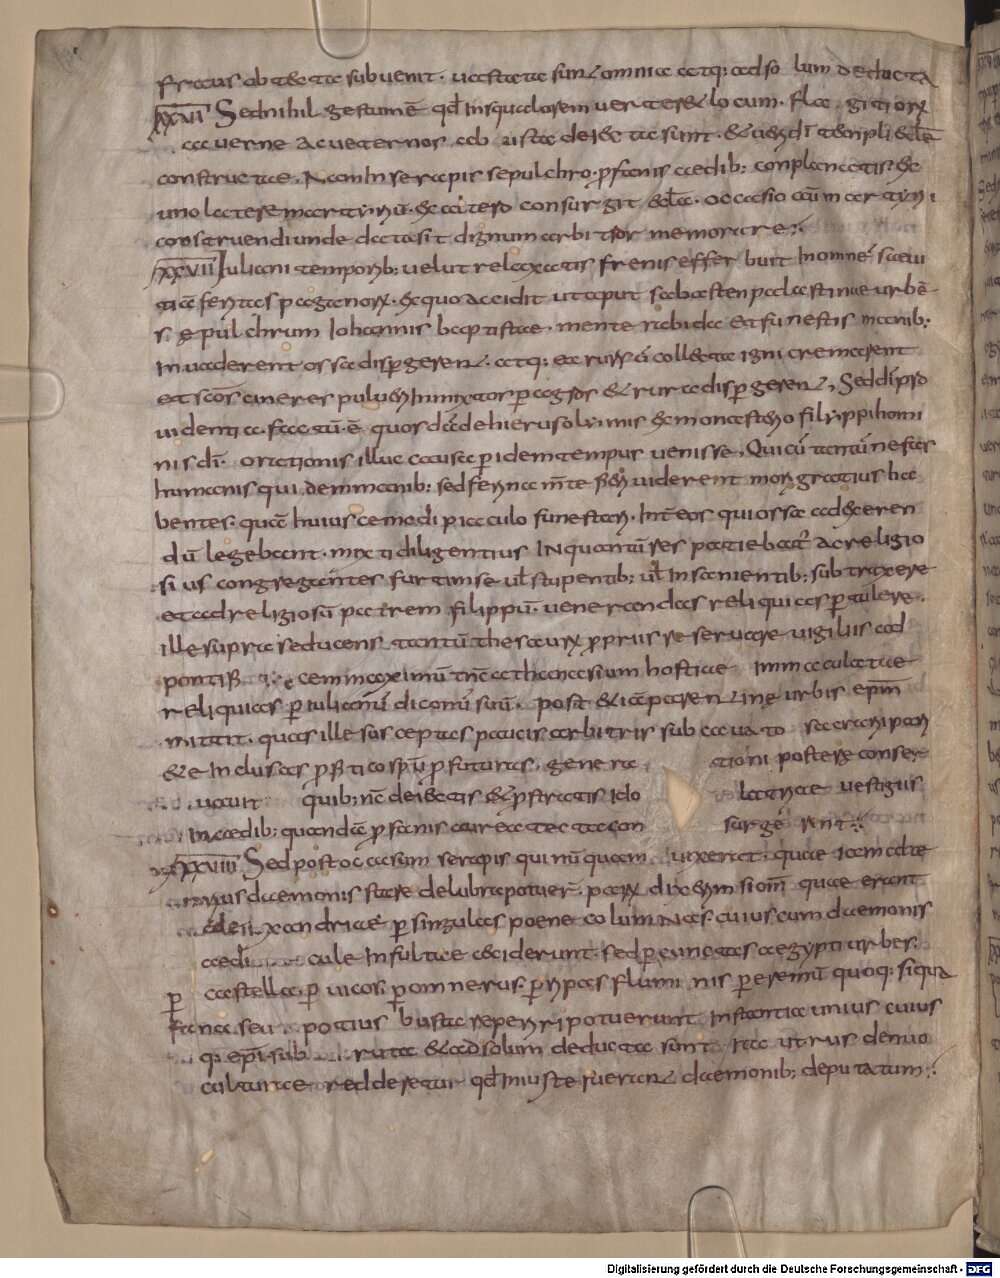 fratus obtecta subvenit. vastata sunt omnia atq: ad so lum deducta
XXVI Sed nihil gestum ē qđ in squalorem verteret locum. fla gitiorū
caverne ac veternos ab usta deiectae sunt. & uerī dī templi & ecł̄ae
constructae. Nam in serapis sepulchro. profanis aedib; conplanatis. &
uno latere martyriū. & altero consurgit ecł̄a. occasio aūt martyrii
construendi unde data sit dignum arbitror memorare:
XXVII Iuliani temporib; velut relaxatis frenis efferbuit in omnē saevi
tiā feritas paganorū. & quo accidit ut aput sebasten palaestinae urbē
sępulchrum Iohannis baptistae. mente rabida et funestis manib;
invaderent ossa dispergerent. atq; ea rursū collecta igni cremarent
et scōs cineres pulveri inmixtos p agros & rura dispergerent, Sed dī pro
videntia factū ē quosdā de hierusolymis de monasterio filyppi homi
nis dī. orationis illuc causa p idem tempus venisse, Qui cū tantū nefas
humanis quidem manib; sed ferina mēte fieri viderent mori gratius ha
bentes. quā huiuscemodi piaculo funestari. Int eos qui ossa adheren
dū legebant. mixti diligentius In quantū res patiebatr̄ ac religio
sius congregantes furtim se vł stupentib; vł insanientib; subtraxere
et ad religiosū patrem filippū. venerandas reliquias ptulere.
ille supra se ducens tantū thesaurū propriis reservare vigiliis ad
pontifi cem maximū tūc athanasium hostiae immaculatae
reliquias p iulianū diaconū suū. post & iā parentinę urbis epm̄
mittit. quas ille susceptas paucis arbitris sub cavato sacrarii pari
ete inclusas profetico spū profuturas. genera tioni postere conser
vavit quib; nc̄ deiectis & prostratis ido latriae vestigiis
in aedib; quondā profanis aurea tecta con surgunt:
XXVIII Sed post occasum serapis qui nūquam vixerat. quae iam alte
rius daemonis stare delubra potuer̄. parū dixerim si om̄ quae erant
alexandriae p singulas poene columnas cuiuscum daemonis
aedi cule insultae ceciderunt. sed p cunctas aegypti urbes.
p castella. p vicos. p omne rus. p ripas fluminis p eremū quoq; siqua
fana. seu potius busta reperiri potuerunt. Instantia unius cuius
q; epi. sub ruta & ad solum deducta sunt. ita ut rus denuo
culturae redderetur qđ iniuste fuerat daemonib; deputatum:
Digitalisierung gefördert durch die Deutsche Forschungsgemeinschaft - DFG